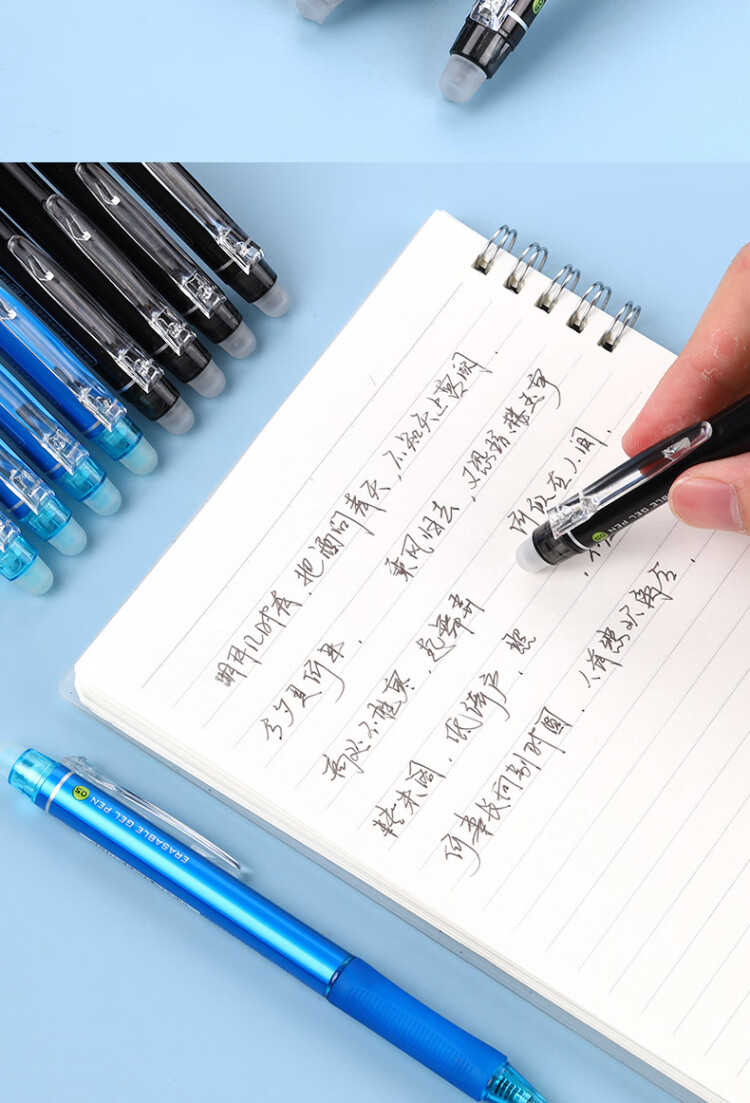 05
明月几时有，把酒问青天，不知天上宫阙
今夕是何年， 乘风归去，又恐琼楼玉宇
高处不胜寒，起舞弄 何似在人间.
转朱阁，低绮户，照
何事长向别时圆，人有悲欢离合，
ERASABLE GEL PEN 05
05 ERASABLE GEL PEN